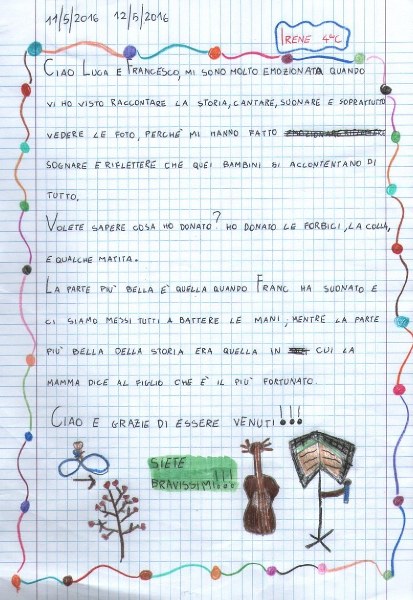 11/5/2016 12/5/2016
IRENE 4°C
CIAO LUCA E FRANCESCO, MI SONO MOLTO EMOZIONATA QUANDO
VI HO VISTO RACCONTARE LA STORIA, CANTARE, SUONARE E SOPRATTUTTO
VEDERE LE FOTO, PERCHÉ MI HANNO FATTO
SOGNARE E RIFLETTERE CHE QUEI BAMBINI SI ACCONTENTANO DI
TUTTO.
VOLETE SAPERE COSA HO DONATO? HO DONATO LE FORBICI, LA COLLA,
E QUALCHE MATITA.
LA PARTE PIU' BELLA E' QUELLA QUANDO FRANC HA SUONATO E
CI SIAMO MESSI TUTTI A BATTERE LE MANI; MENTRE LA PARTE
PIU' BELLA DELLA STORIA ERA QUELLA IN CUI LA
MAMMA DICE AL FIGLIO CHE È IL PIU' FORTUNATO.
CIAO E GRAZIE DI ESSERE VENUTI!!!
SIETE
BRAVISSIMI!!!